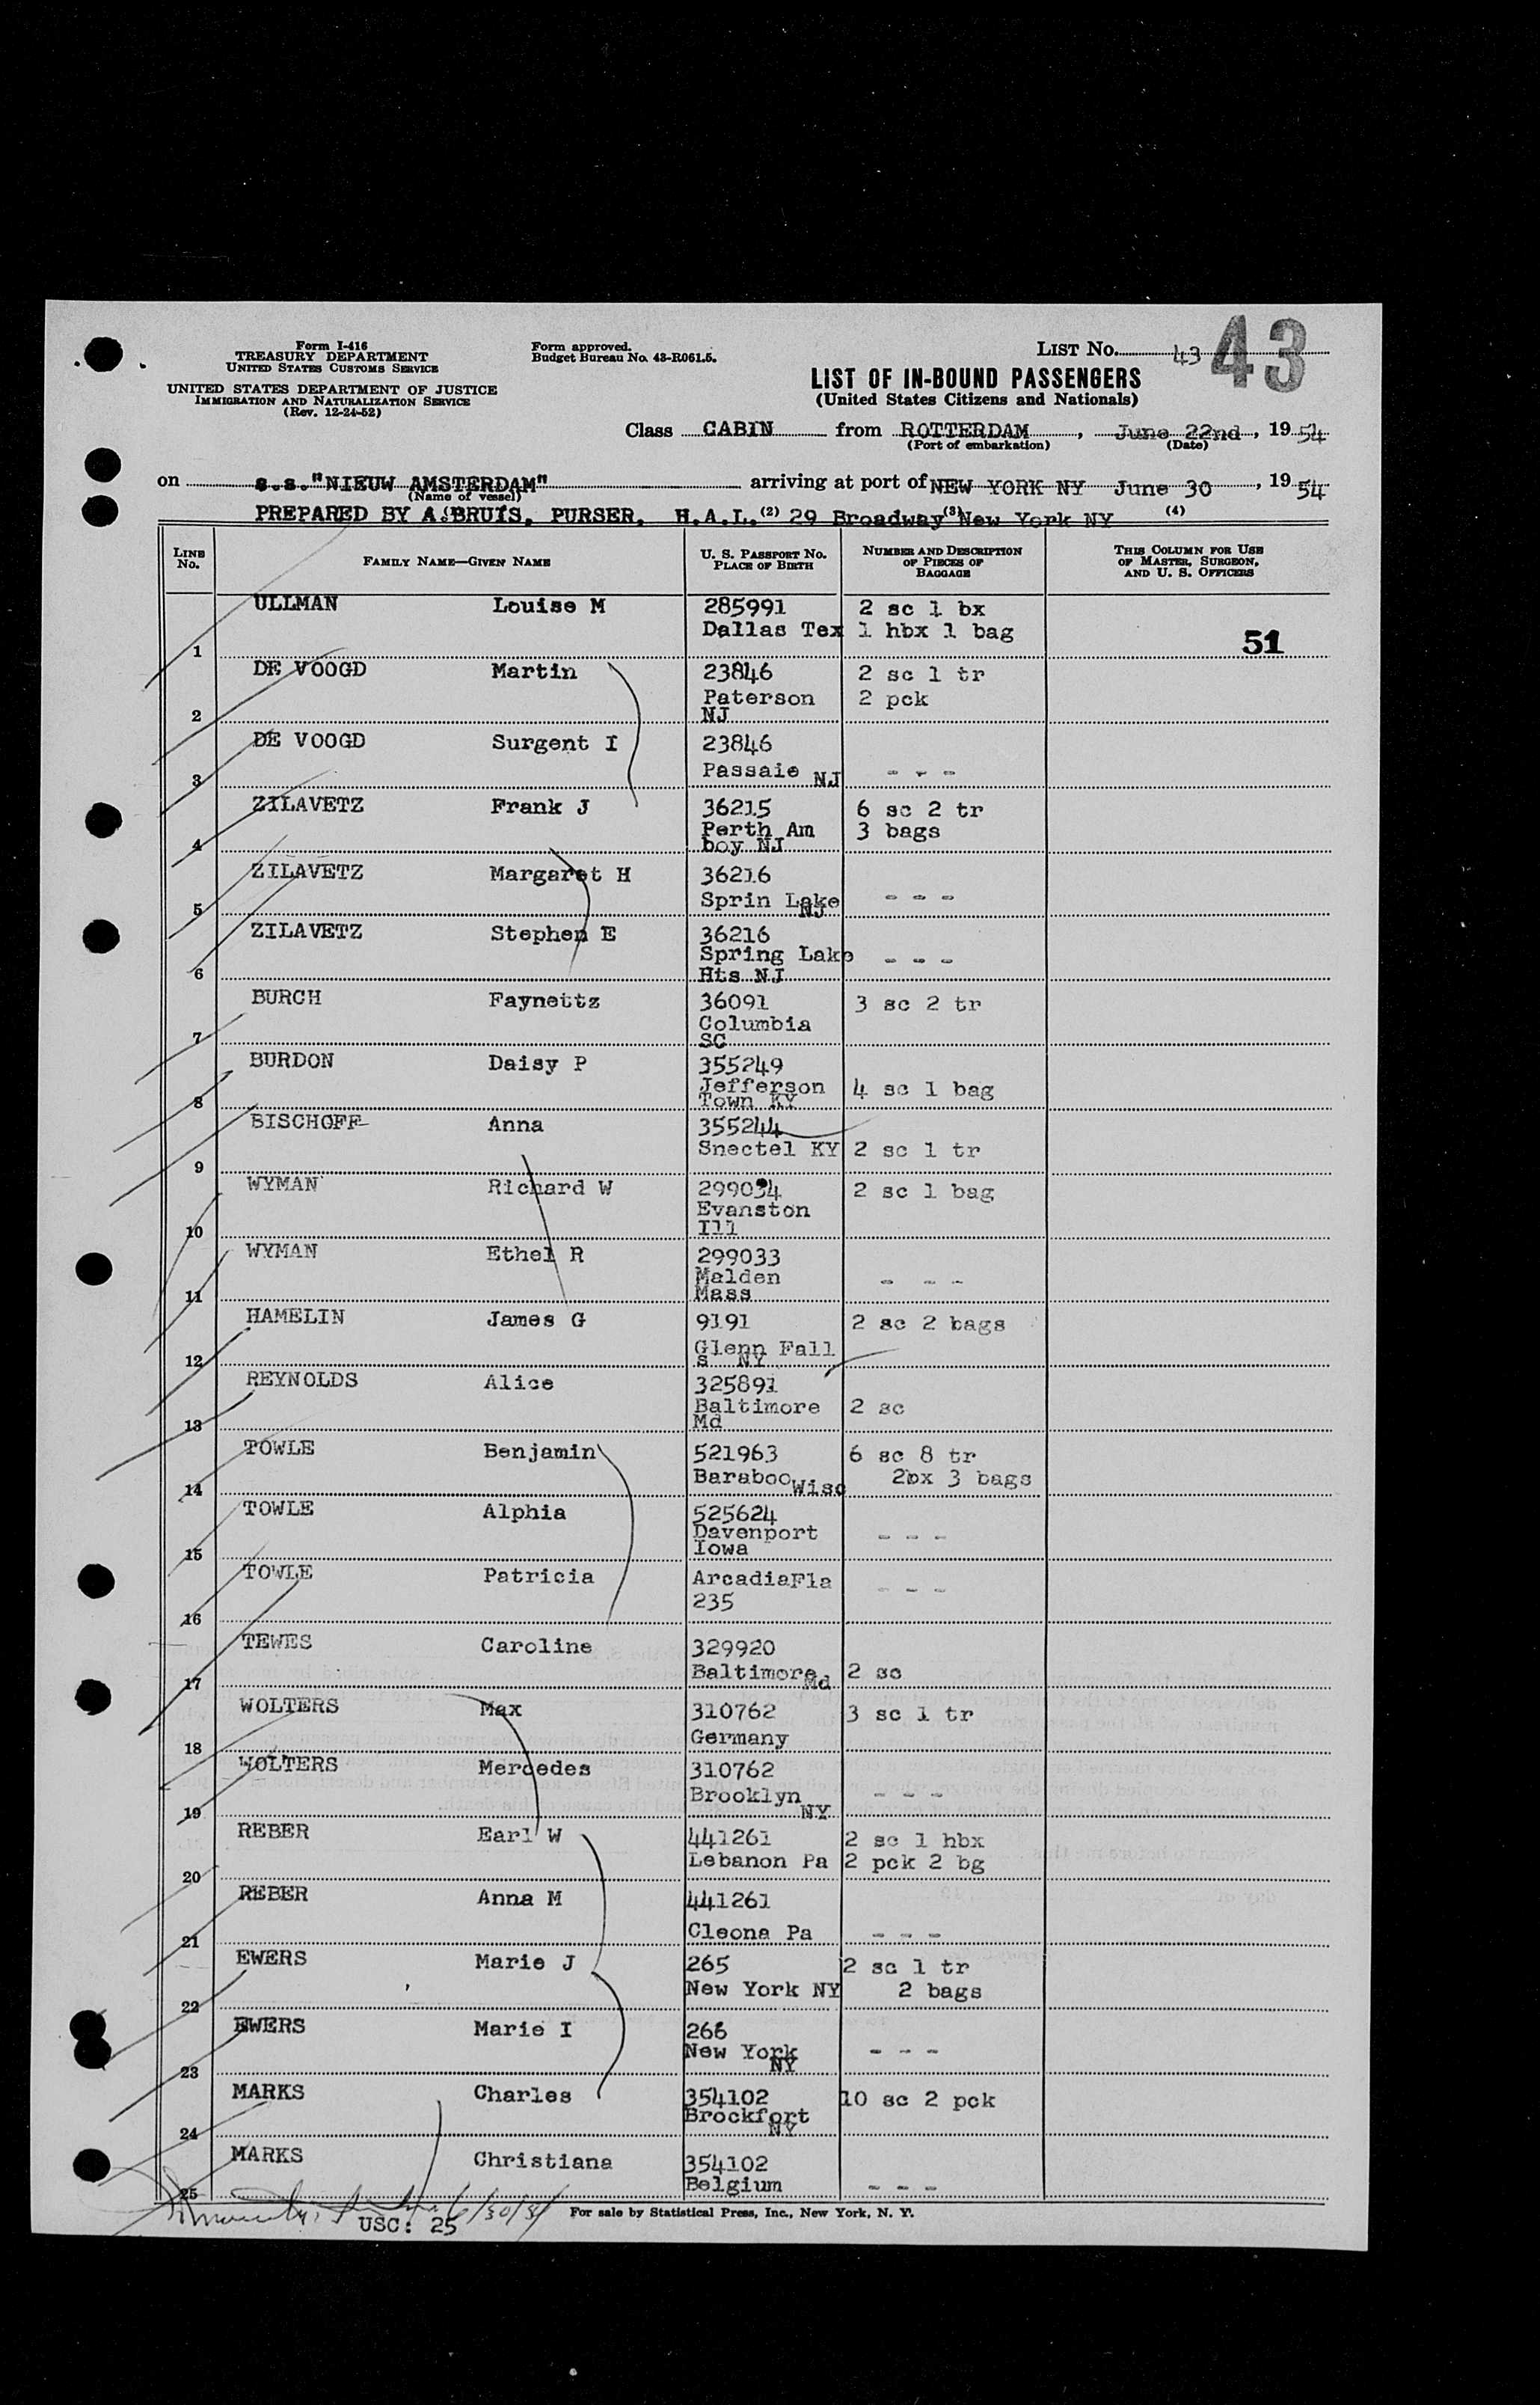 Form I-416
TREASURY DEPARTMENT
UNITED STATES CUSTOMS SERVICE
UNITED STATES DEPARTMENT OF JUSTICE
IMMIGRATION AND NATURALIZATION SERVICE
(Rev. 12-24-52)
Form approved.
Budget Bureau No. 43-R061.5.
LIST NO. 43 43
LIST OF IN-BOUND PASSENGERS
(United States Citizens and Nationals)
Class CABIN from ROTTERDAM, June 22nd, 1954
(Port of embarkation) (Date)
on s.s."NIEUW AMSTERDAM" arriving at port of NEW YORK NY June 30, 1954
(Name of vessel)
PREPARED BY A.BRUIS, PURSER, H.A.L. (2) 29 Broadway (3) New York NY (4)
LINE NO. FAMILY NAME—GIVEN NAME U. S. PASSPORT NO. PLACE OF BIRTH NUMBER AND DESCRIPTION OF PIECES OF BAGGAGE THIS COLUMN FOR USE OF MASTER, SURGEON, AND U. S. OFFICERS
ULLMAN Louise M 285991 2 sc 1 bx
Dallas Tex 1 hbx 1 bag
1 51
DE VOOGD Martin 23846 2 sc 1 tr
Paterson 2 pck
2 NJ
DE VOOGD Surgent I 23846
3 Passaic NJ - - -
ZILAVETZ Frank J 36215 6 sc 2 tr
Perth Am 3 bags
4 boy NJ
ZILAVETZ Margaret H 36216
Sprin Lake - - -
5 NJ
ZILAVETZ Stephen E 36216
Spring Lake - - -
6 Hts NJ
BURCH Faynettz 36091 3 sc 2 tr
Columbia
7 SC
BURDON Daisy P 355249
Jefferson 4 sc 1 bag
8 Town KY
BISCHOFF Anna 355244
Snectel KY 2 sc 1 tr
9
WYMAN Richard W 299034 2 sc 1 bag
Evanston
10 Ill
WYMAN Ethel R 299033
Malden - - -
11 Mass
HAMELIN James G 9191 2 sc 2 bags
Glenn Fall
12 s NY
REYNOLDS Alice 325891
Baltimore 2 sc
13 Md
TOWLE Benjamin 521963 6 sc 8 tr
Baraboo Wisc 2bx 3 bags
14
TOWLE Alphia 525624
Davenport - - -
15 Iowa
TOWLE Patricia ArcadiaFla - - -
235
16
TEWES Caroline 329920
17 Baltimore Md 2 sc
WOLTERS Max 310762 3 sc 1 tr
18 Germany
WOLTERS Mercedes 310762
Brooklyn - - -
19 NY
REBER Earl W 441261 2 sc 1 hbx
Lebanon Pa 2 pck 2 bg
20
REBER Anna M 441261
21 Cleona Pa - - -
EWERS Marie J 265 2 sc 1 tr
New York NY 2 bags
22
EWERS Marie I 266
New York - - -
23 NY
MARKS Charles 354102 10 sc 2 pck
Brockfort
24 NY
MARKS Christiana 354102
25 Belgium - - -
6/30/54
USC: 25 For sale by Statistical Press, Inc., New York, N. Y.